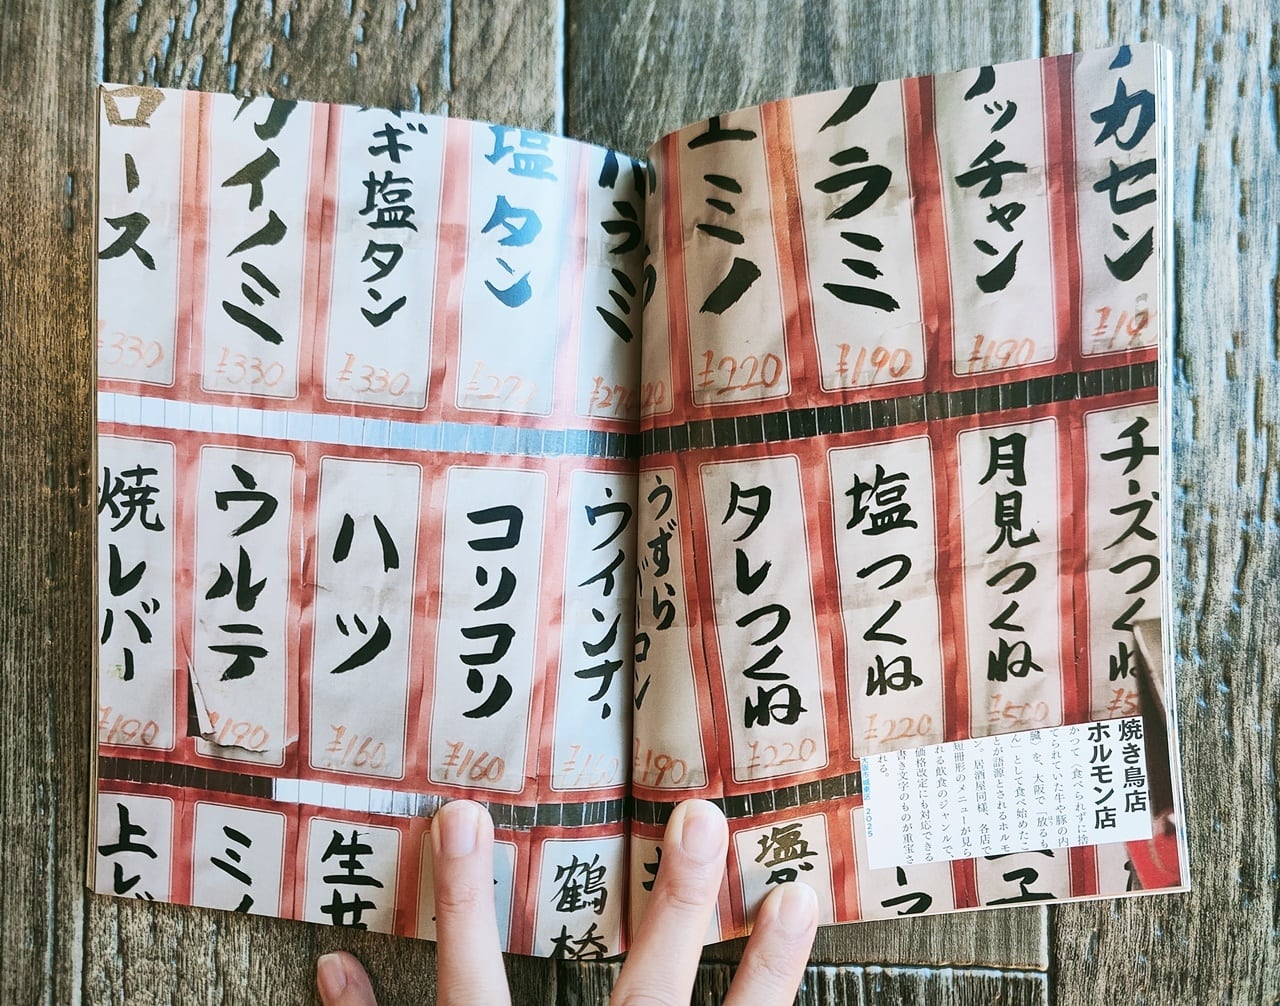 カセン
ッチャン
¥190
ラミ
¥190
上ミノ
¥220
ハラミ
塩タン
¥270
ギ塩タン
¥330
カイノミ
¥330
ロース
¥330
チーズつくね
月見つくね
¥500
塩つくね
¥220
タレつくね
¥220
うずら
¥190
ウインナー
¥160
コリコリ
¥160
ハツ
¥160
ウルテ
¥190
焼レバー
¥190
焼き鳥店
ホルモン店
かつて〈食べられずに捨
てられていた牛や豚の内
臓〉を、大阪で「放るも
ん」として食べ始めたこ
とが語源とされるホルモ
ン。居酒屋同様、各店で
短冊形のメニューが見ら
れる飲食のジャンルで、
価格改定にも対応できる
書き文字のものが重宝さ
れる。
大阪市城東区 2025
塩ダ
鶴橋
生セ
ミノ
上レバ